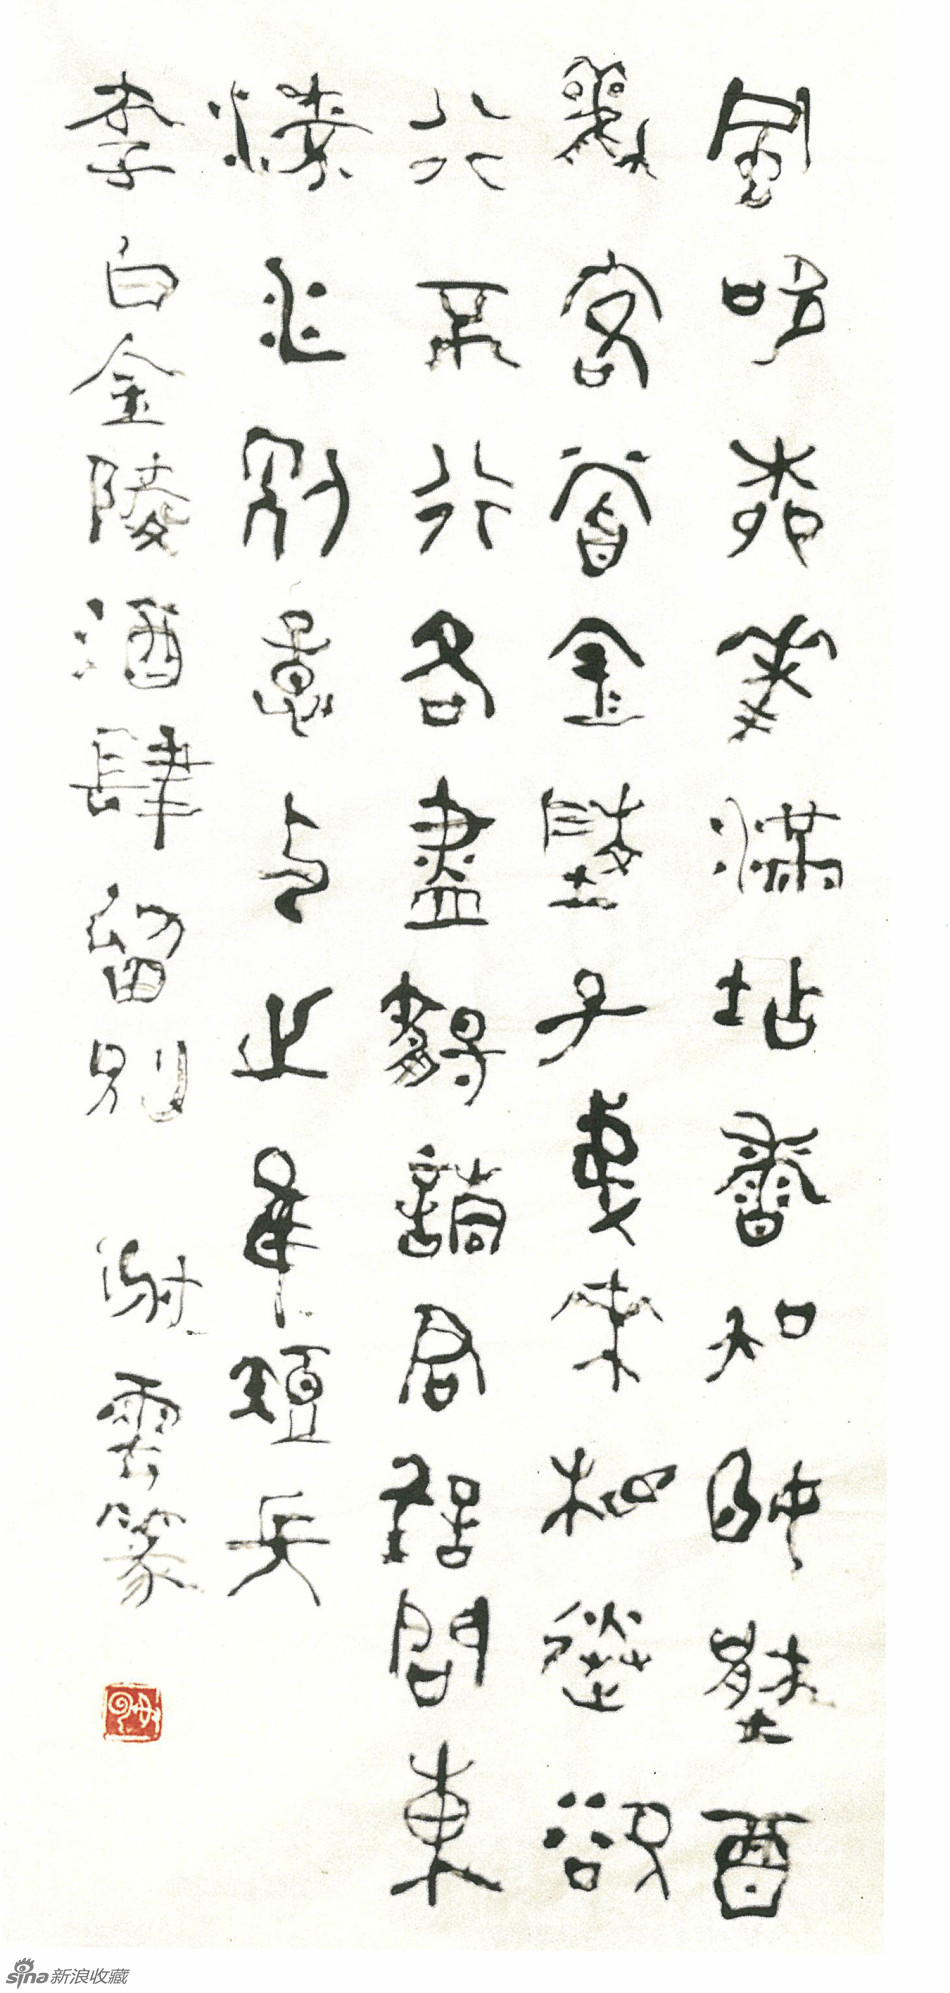 風吹柳花滿坫香吳姬壓酉
喚客嘗金陵子弟來相送欲
行不行各盡觴請君試問東
流水別意與之誰短長
李白金陵酒肆留別 謝雲篆
sina新浪收藏